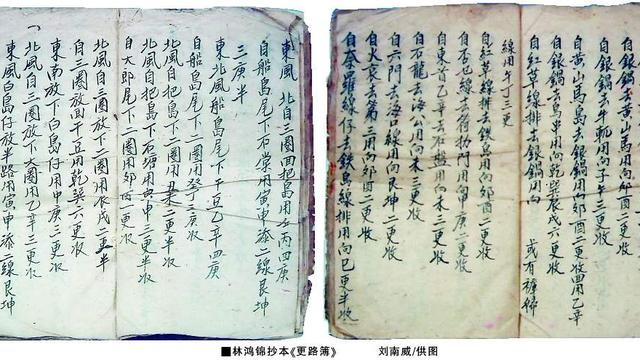 自銀鍋去黃山馬峙用向卯酉二更收
自銀鍋去牛軛用向子午三更收
自黃山馬峙去銀鍋用向卯酉二更收 乙辛
自銀鍋去高 用向乾巽辰戌六更收
自紅草線排去銀鍋用向 或有
線用午丁三更
自紅草線排去鉄島用向卯酉二更收
自杏也線去荷扐門用向甲庚二更收
自東首乙辛去石盤用向未三更收
自石龍去海公用向未三更收
自六門去海口線用向艮坤二更收
自火哀去第三用向卯酉二更收
自奈羅線仔去鉄島線排用向巳更半收
東風 北自三圈面把島用 丙四庚
自船島尾下石塘用寅申添一線艮坤
三庚半
東北風船島尾下干豆乙辛四庚
自船島尾下二圈用癸丁三更
北風自把島下二圈用丑未二更收
北風自把島下石塘用寅申三更半收
自大郎尾下二圈用卯酉 收
北風自三圈放下二圈用辰戌二更半
自三圈放面干豆用乾巽六更收
東南放下白島仔用甲庚三更收
北風自三圈放下大圈用乙辛三更收
東風白島仔放半路用寅申添一線艮坤
■林鸿锦抄本《更路簿》 刘南威/供图